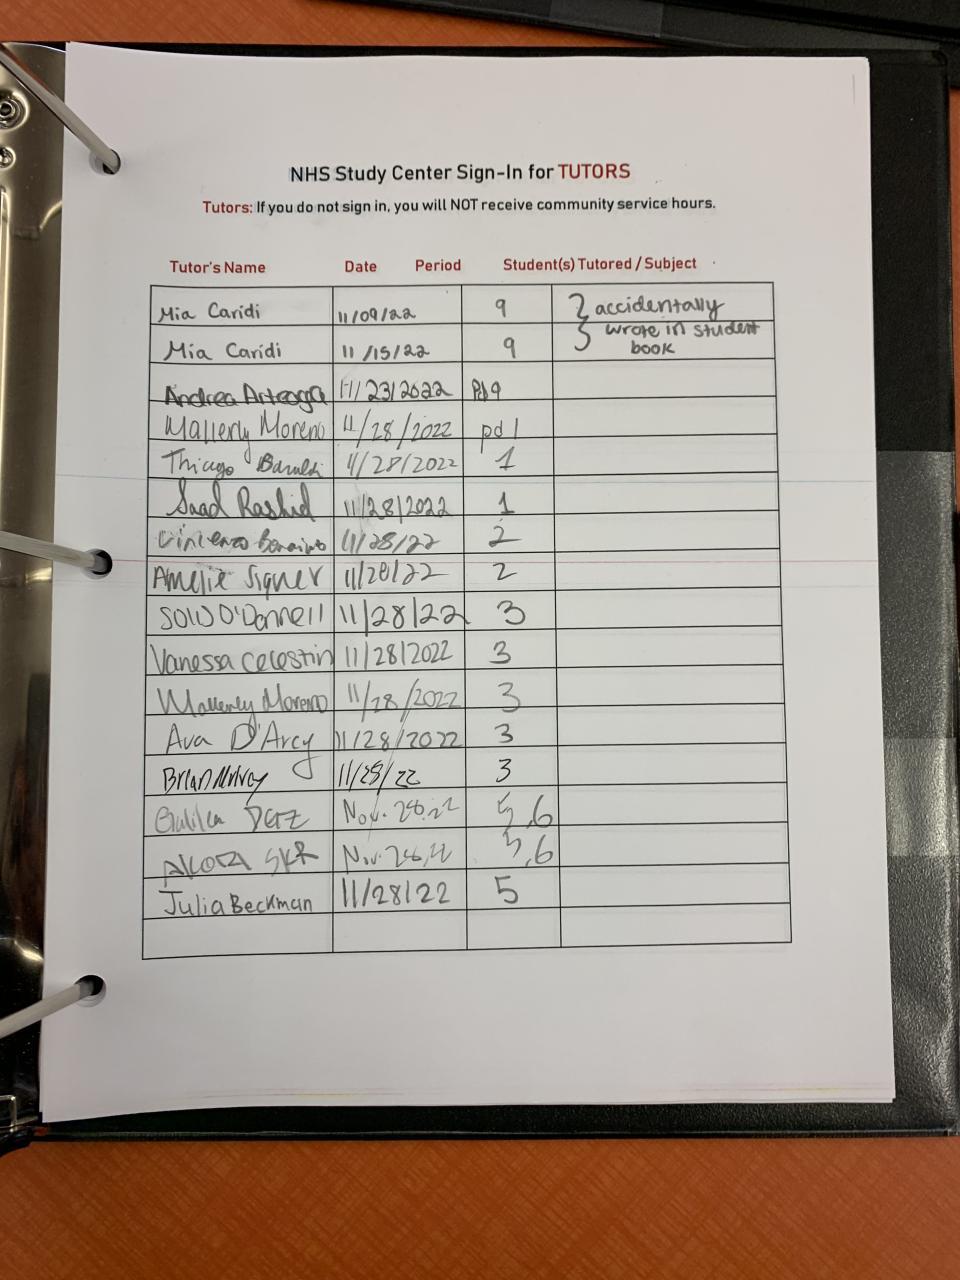 NHS Study Center Sign-In for TUTORS
Tutors: If you do not sign in, you will NOT receive community service hours.
Tutor's Name Date Period Student(s) Tutored / Subject
Mia Caridi 11/09/22 9 accidentally
wrote in student
Mia Caridi 11/15/22 9 book
Andrea Arteaga 11/23/2022 Pd 9
Mallerly Moreno 11/28/2022 pd 1
Thiago 11/28/2022 1
Saad Rashid 11/28/2022 1
Vincenzo 11/28/22 2
Amelie Signer 11/28/22 2
O'Donnell 11/28/22 3
Vanessa Celestin 11/28/2022 3
Mallerly Moreno 11/28/2022 3
Ava D'Arcy 11/28/2022 3
Brian 11/28/22 3
Nov. 28, 22 5,6
Nov. 28, 22 5,6
Julia Beckman 11/28/22 5